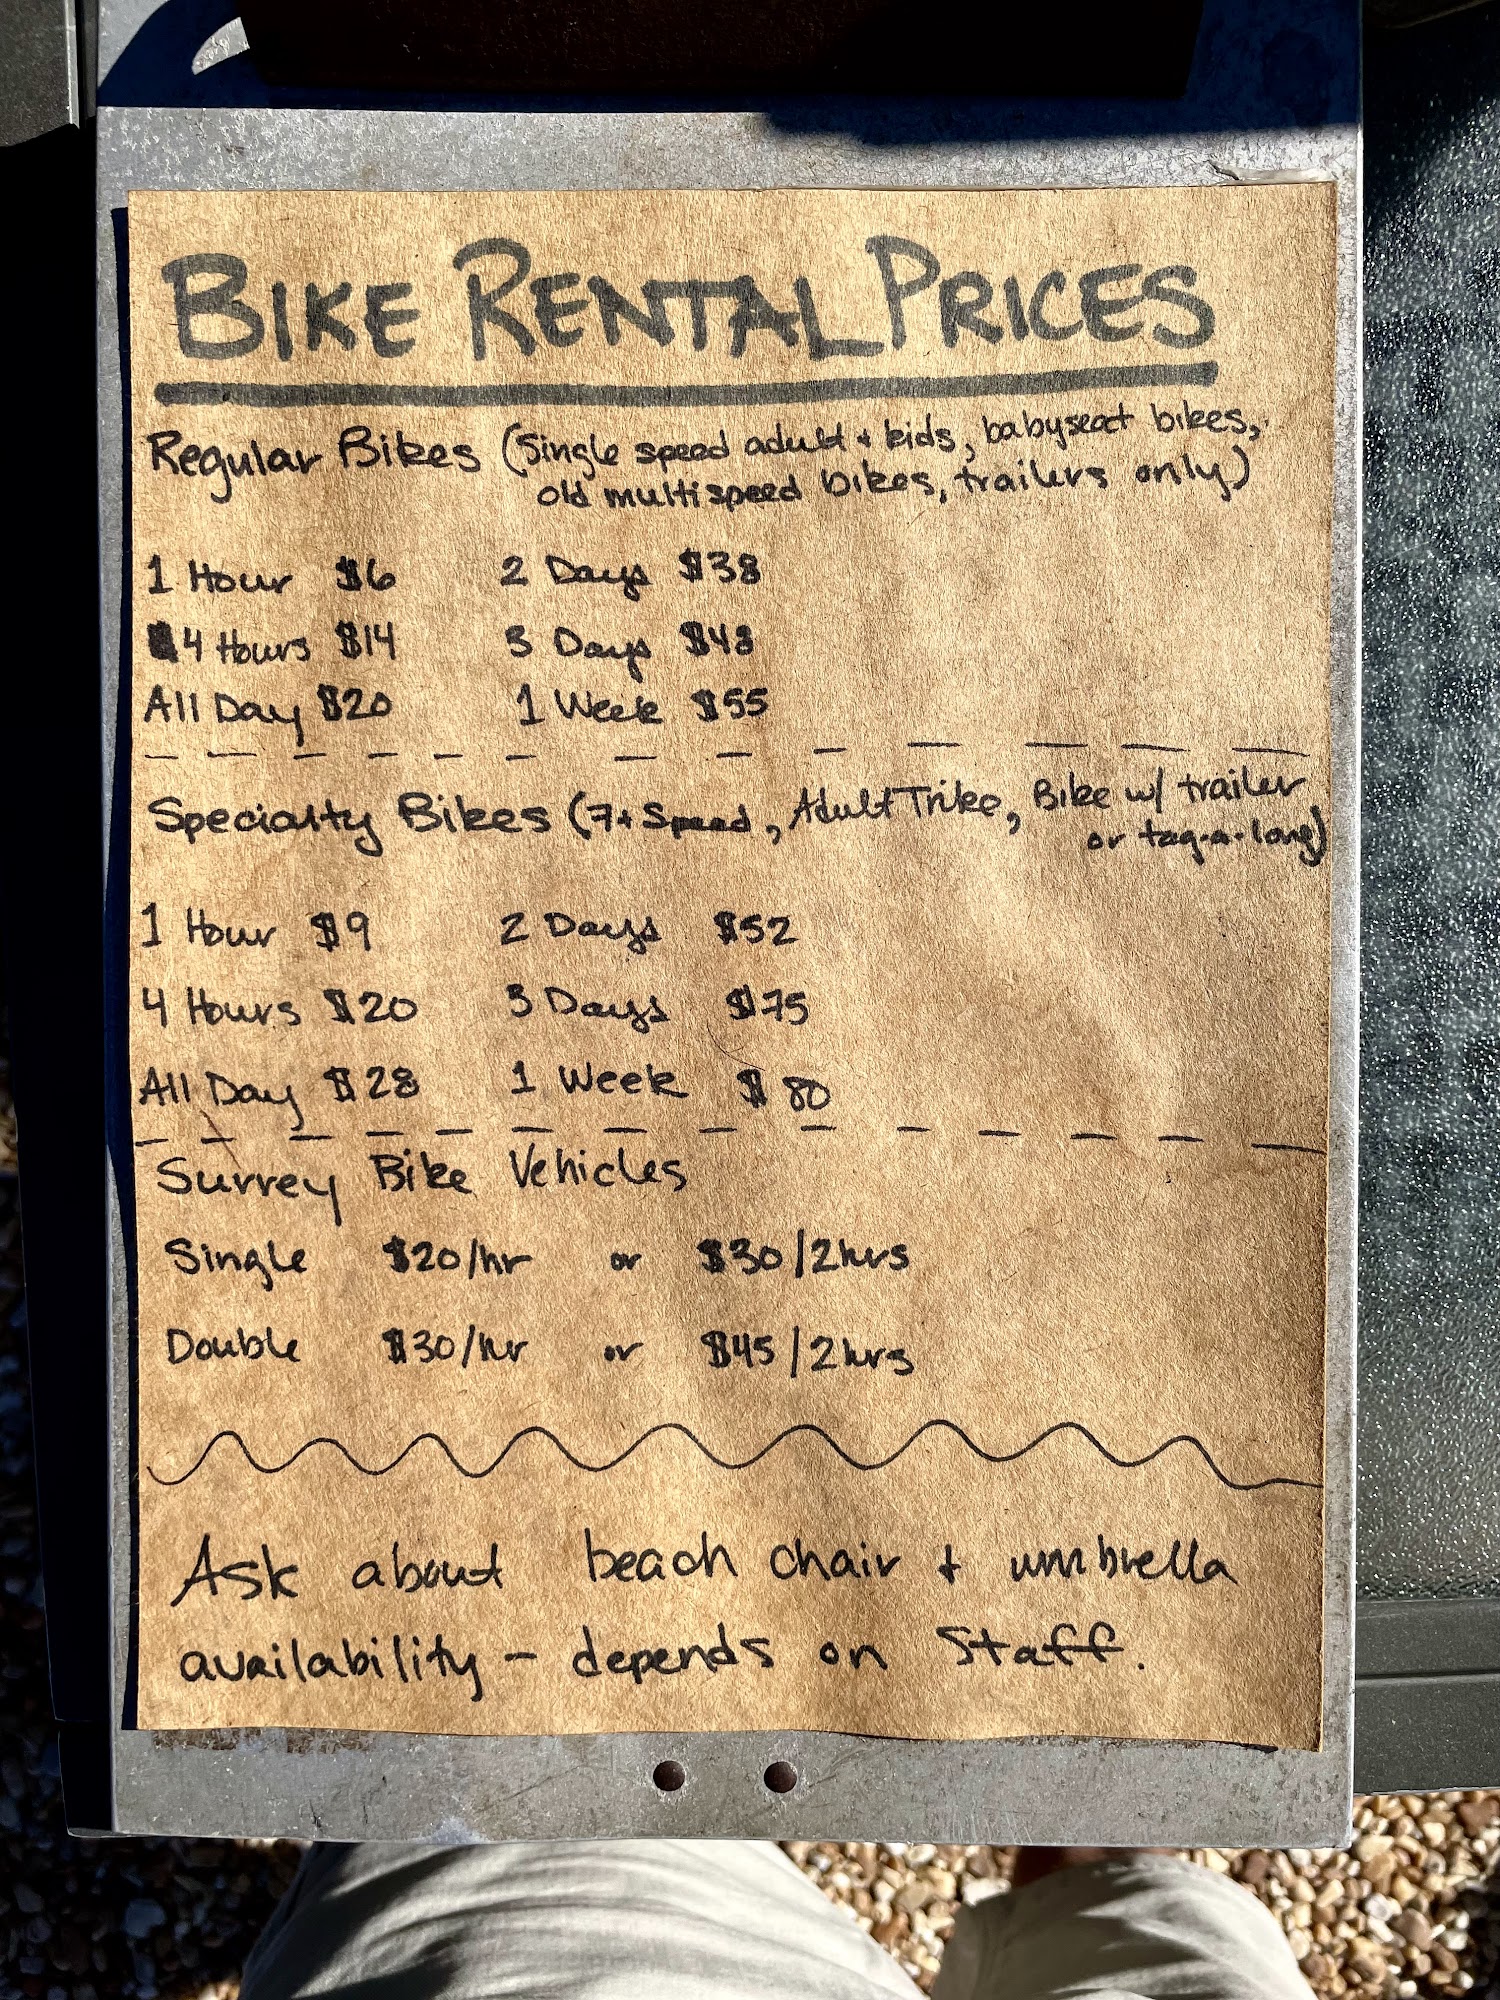 BIKE RENTAL PRICES
Regular Bikes (Single speed adult + kids, babyseat bikes,
old multispeed bikes, trailers only)
1 Hour $6 2 Days $38
4 Hours $14 3 Days $48
All Day $20 1 Week $55
Specialty Bikes (7+ Speed, Adult Trike, Bike w/ trailer
or tag-a-long)
1 Hour $9 2 Days $52
4 Hours $20 3 Days $75
All Day $28 1 Week $80
Surrey Bike Vehicles
Single $20/hr or $30/2hrs
Double $30/hr or $45/2hrs
Ask about beach chair + umbrella
availability - depends on Staff.